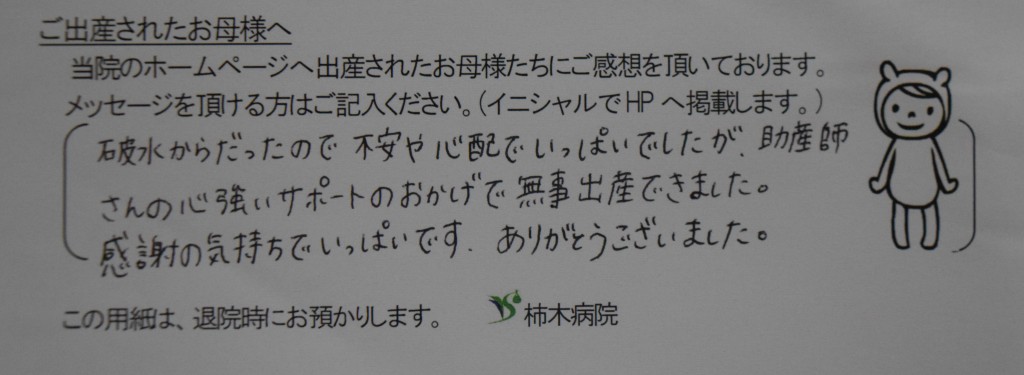 ご出産されたお母様へ
当院のホームページへ出産されたお母様たちにご感想を頂いております。
メッセージを頂ける方はご記入ください。(イニシャルでHPへ掲載します。)
破水からだったので不安や心配でいっぱいでしたが、助産師
さんの心強いサポートのおかげで無事出産できました。
感謝の気持ちでいっぱいです。ありがとうございました。
この用紙は、退院時にお預かりします。 柿木病院